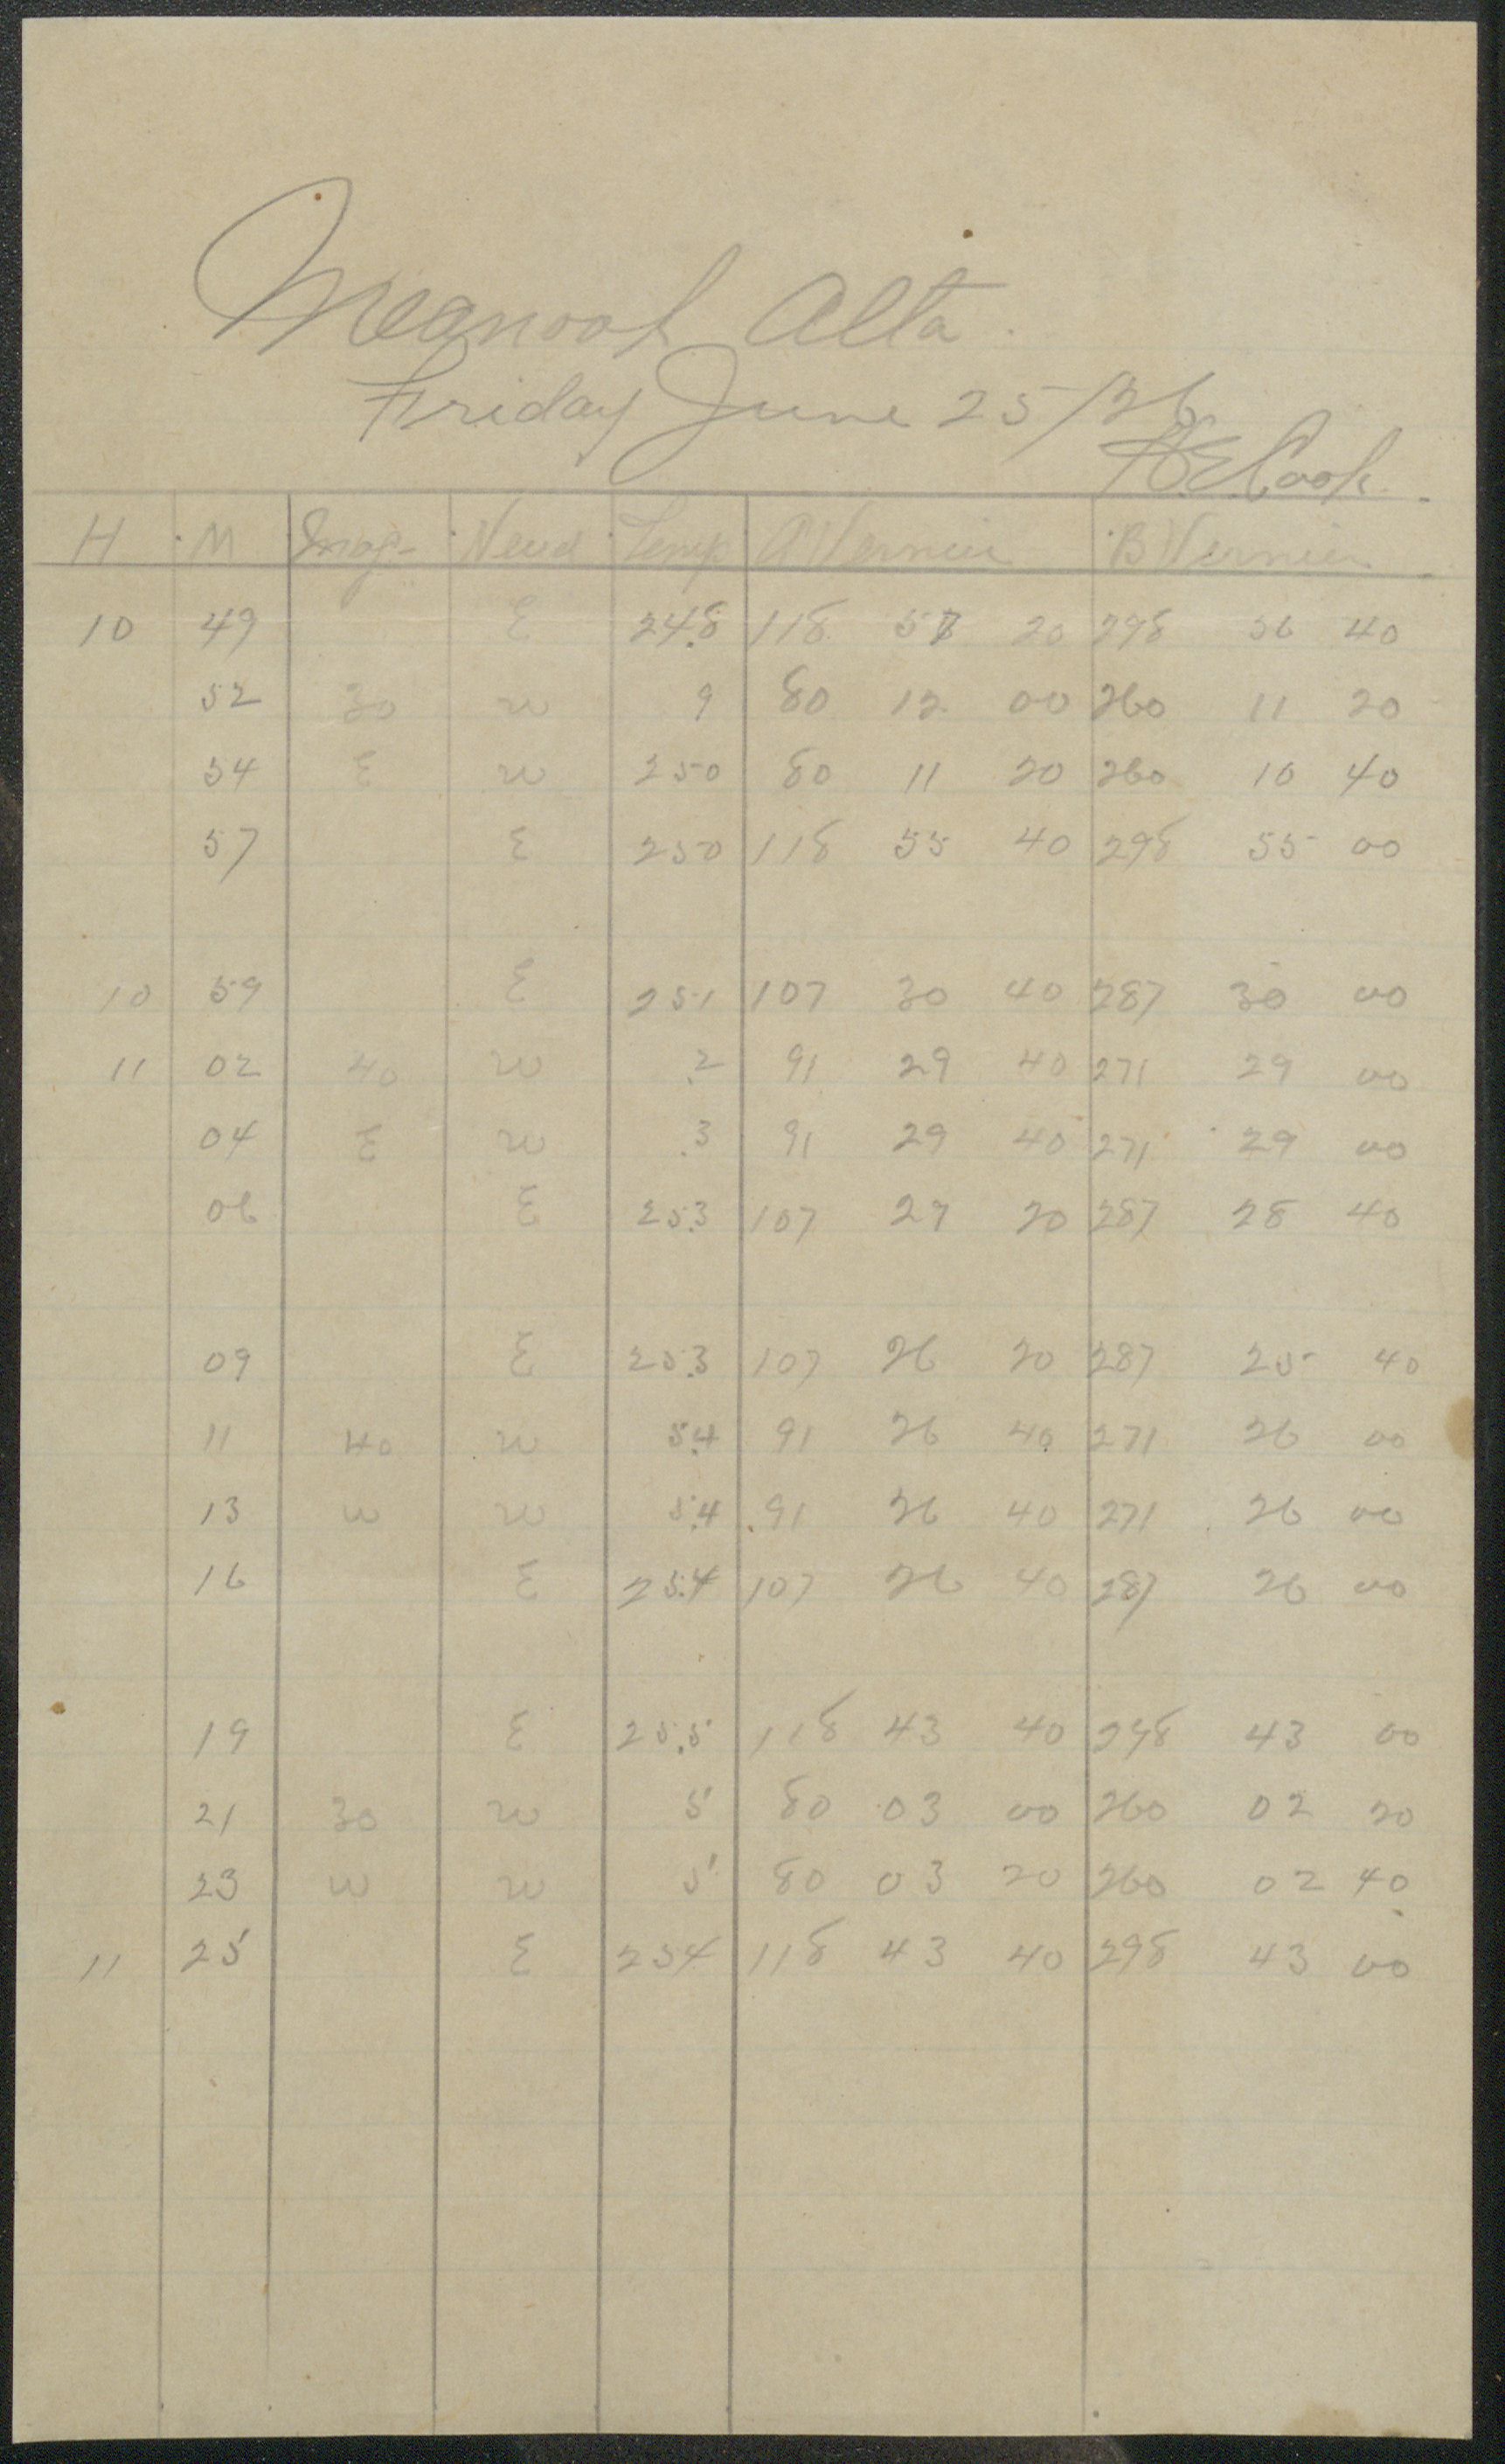 Meanook Alta.
Friday June 25/26
H.E. Cook.
H M Mag. Need Temp A Vernier B Vernier
10 49 E 24.8 118 57 20 298 56 40
52 30 W 9 80 12 00 260 11 20
54 E W 250 80 11 20 260 10 40
57 E 250 118 55 40 298 55 00
10 59 E 251 107 30 40 287 30 00
11 02 40 W .2 91 29 40 271 29 00
04 E W .3 91 29 40 271 29 00
06 E 25.3 107 29 20 287 28 40
09 E 25.3 107 26 20 287 25 40
11 40 W 5.4 91 26 40 271 26 00
13 W W 5.4 91 26 40 271 26 00
16 E 25.4 107 26 40 287 26 00
19 E 25.5 118 43 40 298 43 00
21 30 W 5 80 03 00 260 02 20
23 W W 5 80 03 20 260 02 40
11 25 E 254 118 43 40 298 43 00